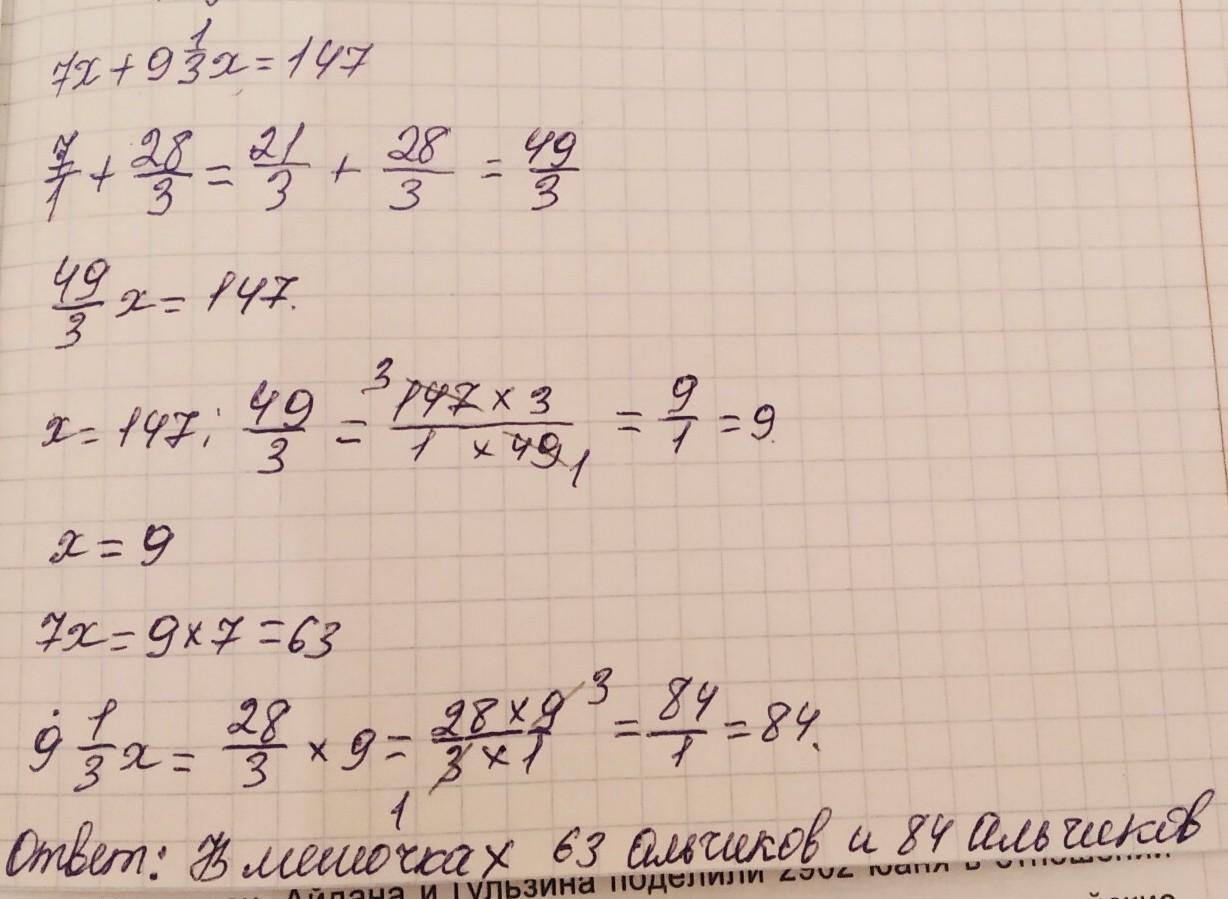 7x + 9 1/3 x = 147
7/1 + 28/3 = 21/3 + 28/3 = 49/3
49/3 x = 147.
x = 147 : 49/3 = 3 147 × 3 / 1 × 49 1 = 9/1 = 9.
x = 9
7x = 9 × 7 = 63
9 1/3 x = 28/3 × 9 = 28 × 9 3 / 3 × 1 1 = 84/1 = 84.
Ответ: В мешочках 63 альчиков и 84 альчиков
Айдана и Гульзина поделили 2902 юаня в отношении